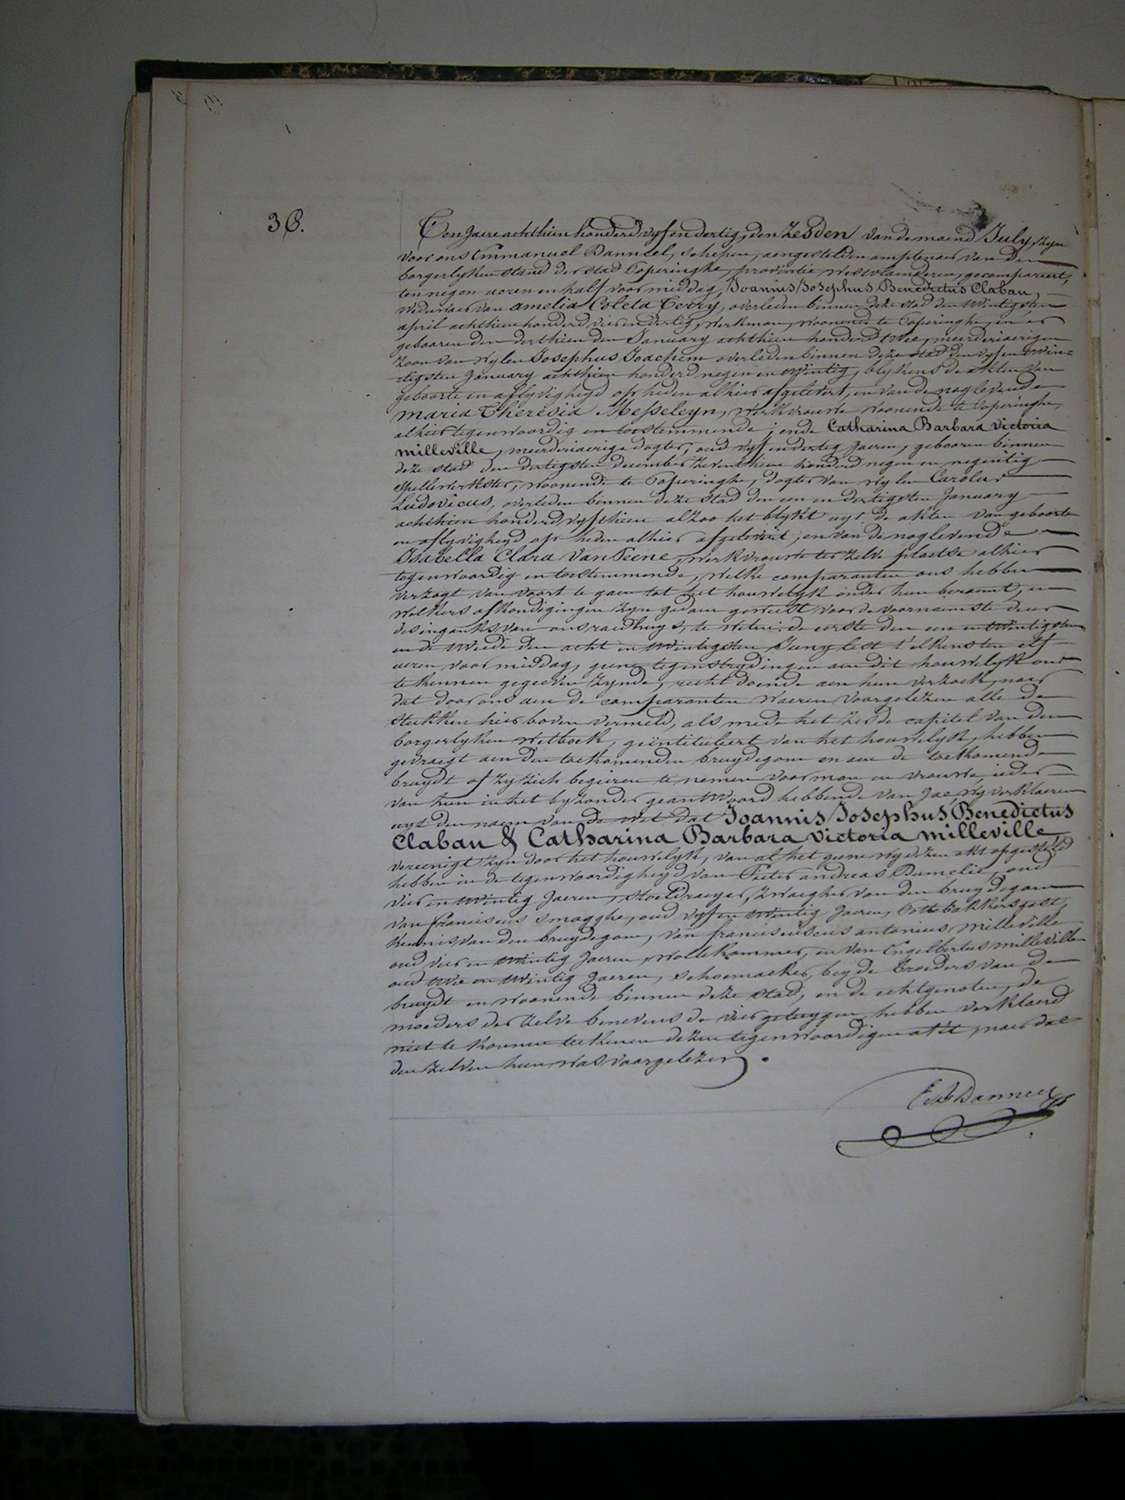 36.
Ten Jaere achthien honderd vyf en dertig, den zesden van de maend July, zyn
voor ons Emmanuel Danneel, schepen, aengestelden amptenaer van den
borgerlyken stand der stad Poperinghe, provintie westvlaenderen, gecompareert,
ten negen uren en half voor middag, Joannis Josephus Benedictus Claban,
weduwaer van amelia Coleta Covry, overleden binnen deze stad den twintigsten
april achthien honderd vier en dertig, werkman, woonende te Poperinghe, en er
gebooren den derthienden January achthien honderd twee, meerderjaerigen
zoon van wylen Josephus Joachem overleden binnen deze stad den vyf en twin-
tigsten January achthien honderd negen en twintig, blykens de akten van
geboorte en aflyvigheyd op heden alhier afgelevert, en van de naglevende
maria Theresia Messeleyn, werkvrouw woonende te Poperinghe,
alhier tegenwoordig en toestemmende; ende Catharina Barbara victoria
milleville, meerderjaerige dogter, oud vyf en dertig Jaeren, gebooren binnen
deze stad den dertigsten december zeventhien honderd negen en negentig
spellewerkster, woonende te Poperinghe, dogter van wylen Carolus
Ludovicus, overleden binnen deze stad den een en dertigsten January
achthien honderd vyfthien alzoo het blykt uyt de akten van geboorte
en aflyvigheyd op heden alhier afgelevert, en van de naglevende
Isabella Clara Van Peene, werkvrouw ter zelve plaetse alhier
tegenwoordig en toestemmende, welke comparanten ons hebben
verzogt van voort te gaen tot het houwelyk onder hun beraemt, en
welkers afkondigingen zyn gedaen geweest voor de voornaemste deur
des ingangs van ons raedhuys, te weten: de eerste den een en twintigsten
en de tweede den acht en twintigsten Juny lest t'elkensten elf
ueren voor middag, geene tegenstrydingen aen dit houwelyk ons
te kennen gegeven zynde, recht doende aen hun verzoek, naer
dat door ons aen de comparanten waeren voorgelezen alle de
stukken hier boven vermeld, als mede het zesde capitel van den
borgerlyken wetboek, geïntituleert van het houwelyk, hebben
gevraegt aen den toekomenden bruydegom en aen de toekomende
bruydt of zy zich begeeren te nemen voor man en vrouwe, ieder
van hun in het byzonder geantwoord hebbende van Jae, wy verklaeren
uyt den naem van de wet dat Joannis Josephus Benedictus
Claban & Catharina Barbara victoria milleville
vereenigt zyn door het houwelyk, van al het geene wy dezen akt opgesteld
hebben in de tegenwoordigheyd van Pieter andreas Dumelie, oud
vier en twintig Jaeren, stoeldraeyer, zwaegher van den bruydegom
van franciscus smagghe, oud vyf en twintig Jaeren, Potbakkersgast,
kennis van den bruydegom, van franciscus antonius milleville
oud vier en twintig Jaeren, wollekammer, en van Engelbertus milleville
oud twee en twintig Jaeren, schoemaeker, beyde broeders van de
bruydt en woonende binnen deze stad, en de echtgenoten, de
moeders der zelve benevens de vier getuygen hebben verklaerd
niet te konnen teekenen dezen tegenwoordigen akt, naer dat
den zelven hun was voorgelezen.
Danneel